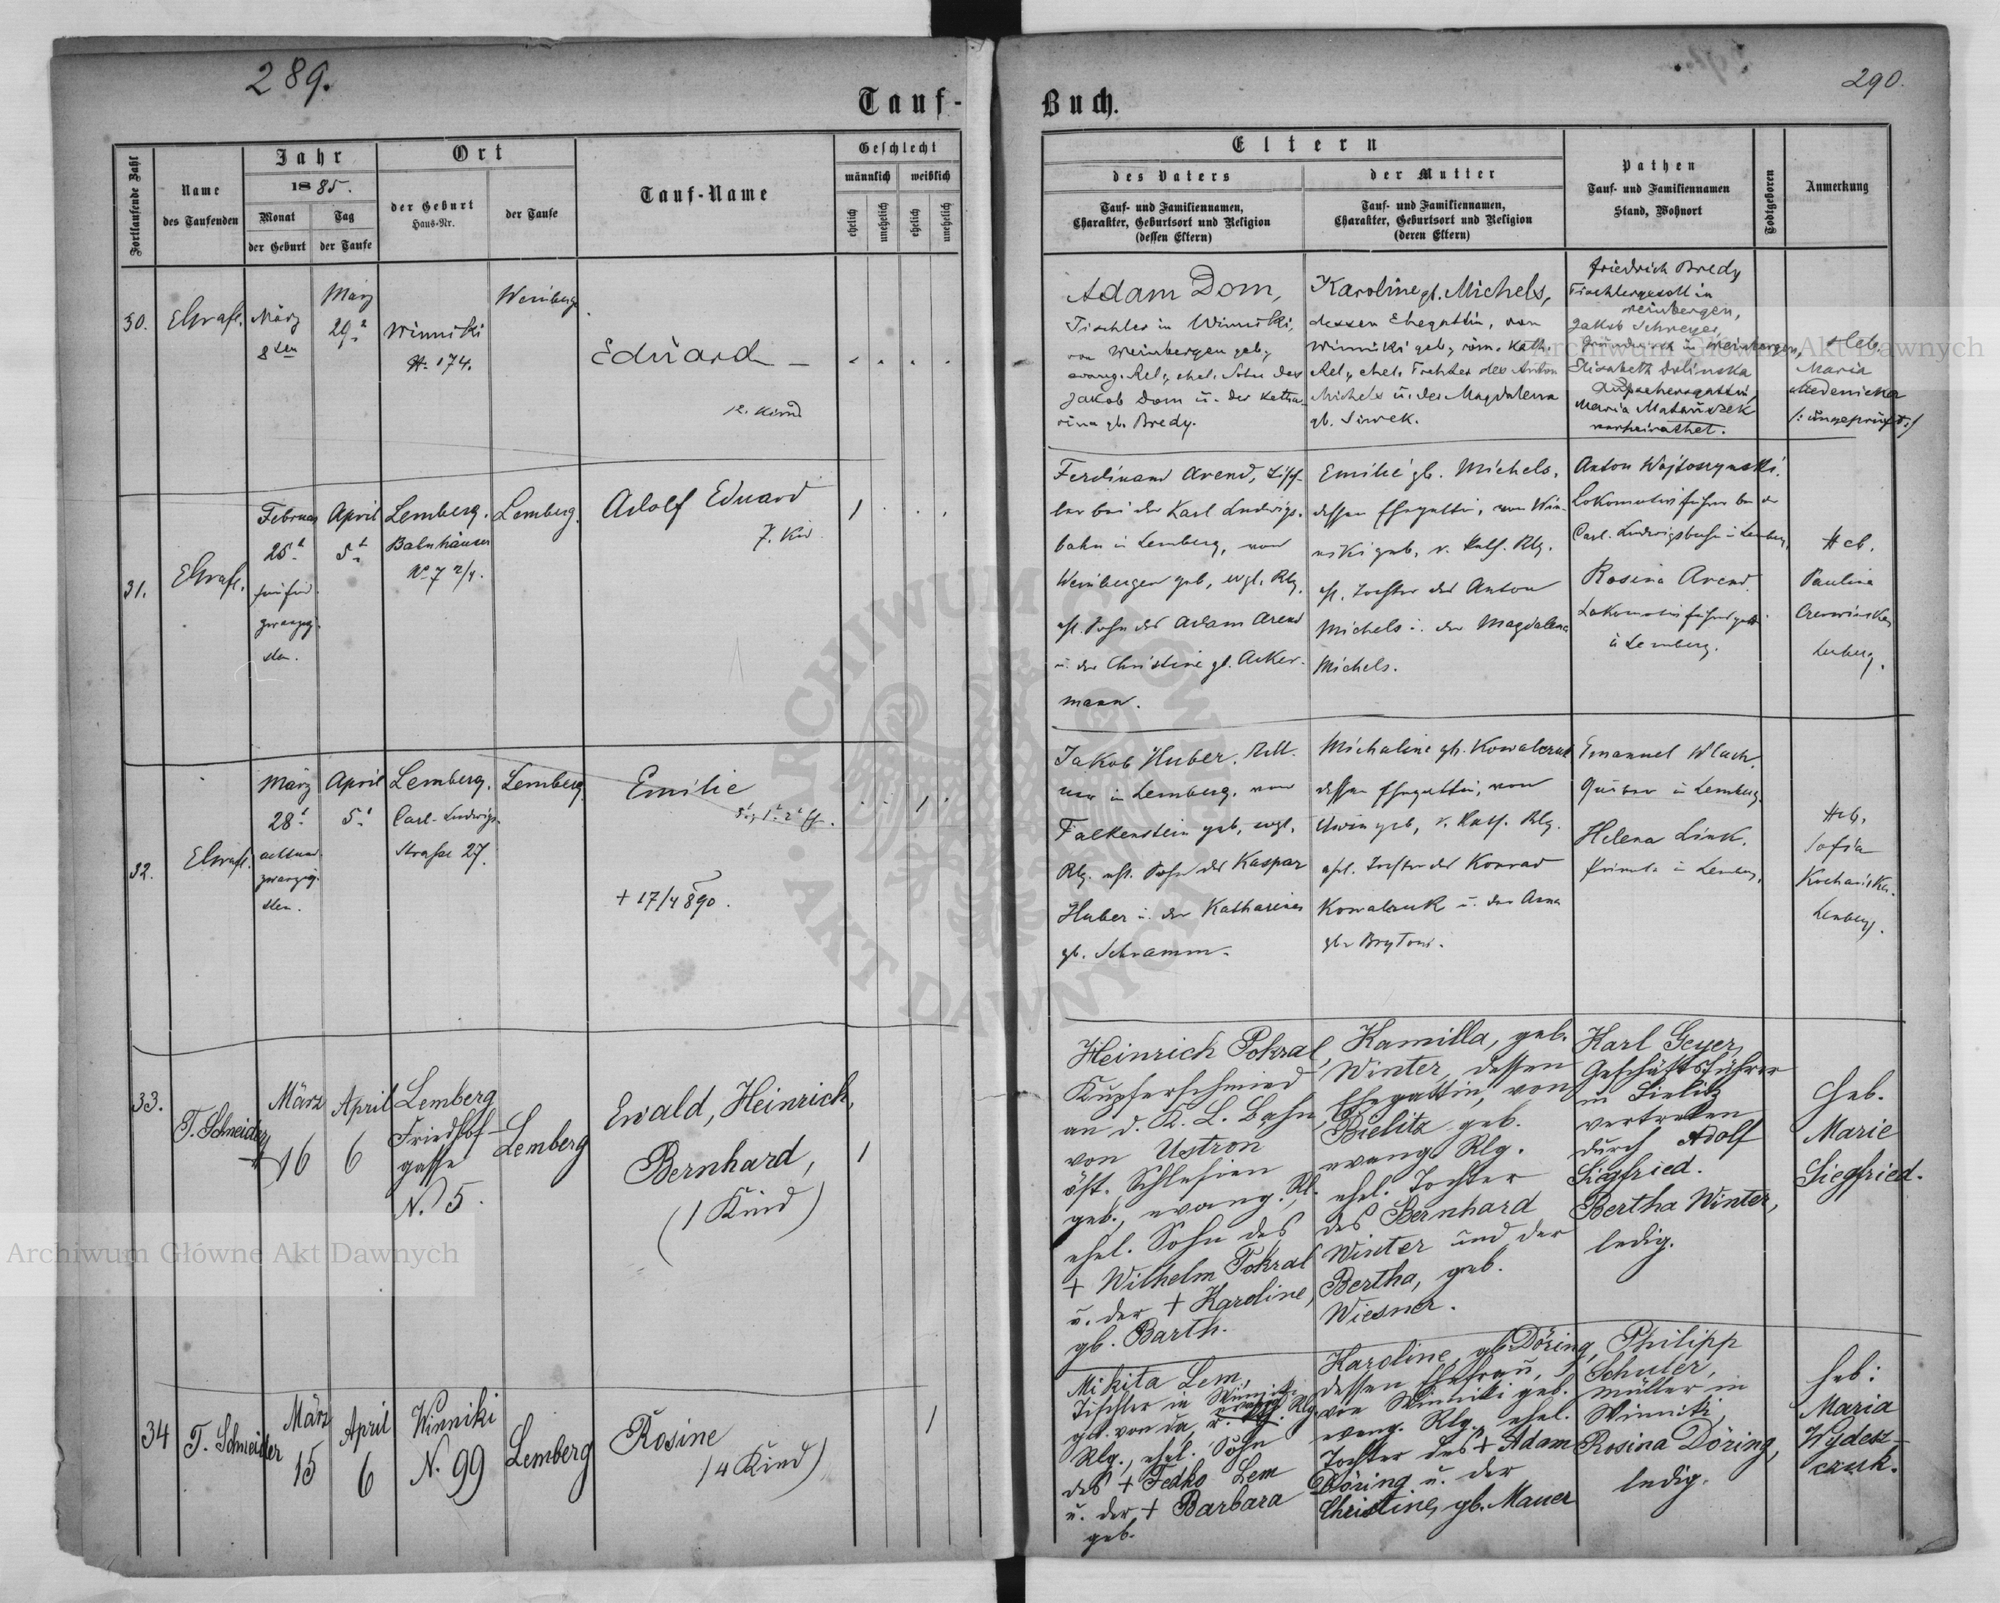 289.
Tauf-
Fortlaufende Zahl
Name
des Taufenden
Jahr
1885.
Monat
der Geburt
Tag
der Taufe
Ort
der Geburt
Haus-Nr.
der Taufe
Tauf-Name
Geschlecht
männlich
weiblich
ehelich
unehelich
ehelich
unehelich
30.
März
8ten
März
29
Winniki
174.
Weinberge
Eduard —
12. Kind
31.
Februar
25
fünfund
zwanzig
sten.
April
5
Lemberg.
Bahnhäuser
No 7
Lemberg.
Adolf Eduard
7. Kind
1
32.
März
28
achtund
zwanzig
sten.
April
5
Lemberg.
Carl-Ludwigs-
Straße 27.
Lemberg.
Emilie
+ 17/4 890.
1
33.
T. Schneider
März
16
April
6
Lemberg
Friedhof-
gasse
N. 5.
Lemberg
Ewald, Heinrich,
Bernhard,
(1 Kind)
1
34
T. Schneider
März
15
April
6
Winniki
N. 99
Lemberg
Rosine
(4 Kind)
1
290.
Buch.
Eltern
des Vaters
Tauf- und Familiennamen,
Charakter, Geburtsort und Religion
(dessen Eltern)
der Mutter
Tauf- und Familiennamen,
Charakter, Geburtsort und Religion
(deren Eltern)
Pathen
Tauf- und Familiennamen
Stand, Wohnort
Todtgeboren
Anmerkung
Adam Dom,
Tischler in Winniki,
von Weinbergen geb.,
evang. Rel., ehel. Sohn des
Jakob Dom u. der Katha-
rina gb. Bredy.
Karoline gb. Michels,
dessen Ehegattin, von
Winniki geb., röm. kath.
Rel., ehel. Tochter des Anton
Michels u. der Magdalena
gb. Siwek.
Friedrich Bredy
in
Weinbergen,
Jakob Schreyer,
Grundwirth in Weinbergen,
Elisabeth Dolinska
Maria Matauszek
verheirathet.
Heb.
Maria
Medenicka
/: ungeprüft :/
Ferdinand Arend, Tisch-
ler bei der Karl Ludwigs-
bahn in Lemberg, von
Weinbergen geb., evgl. Rlg.
ehl. Sohn des Adam Arend
u. der Christine gb. Acker-
mann.
Emilie gb. Michels,
dessen Ehegattin, von Win-
niki geb., r. kath. Rlg.
ehl. Tochter des Anton
Michels u. der Magdalena
Michels.
Anton Wojtoszynski,
Lokomotivführer bei der
Carl-Ludwigsbahn in Lemberg,
Rosina Arend
in Lemberg.
Heb.
Paulina
Lemberg.
Jakob Huber,
in Lemberg, von
Falkenstein geb., evgl.
Rlg. ehl. Sohn des Kaspar
Huber u. der Katharina
gb. Schramm.
Michaline gb. Kowalczuk
dessen Ehegattin, von
geb., r. kath. Rlg.
ehl. Tochter des Konrad
Kowalczuk u. der Anna
gb.
Emanuel Wlach,
in Lemberg,
Helena Link,
Private in Lemberg.
Heb.
Sofia
Kochańska.
Lemberg.
Heinrich Pokral,
Kupferschmied
an d. K. L. Bahn,
von Ustron
öst. Schlesien
geb., evang. Rl.
ehel. Sohn des
+ Wilhelm Pokral
u. der + Karoline,
gb. Barth.
Kamilla, geb.
Winter, dessen
Ehegattin, von
Bielitz geb.
evang. Rlg.
ehel. Tochter
des Bernhard
Winter und der
Bertha, geb.
Wiesner.
Karl Geyer,
Geschäftsführer
in Bielitz
vertreten
durch Adolf
Siegfried.
Bertha Winter,
ledig.
Heb.
Marie
Siegfried.
Mikita Lem,
Tischler in Winniki
geb. von da,
Rlg., ehel. Sohn
des + Fedko Lem
u. der + Barbara
geb.
Karoline, gb. Döring,
dessen Ehefrau,
von Winniki geb.
evang. Rlg., ehel.
Tochter des + Adam
Döring u. der
Christine, gb. Mauer
Philipp
Schuler,
Müller in
Winniki,
Rosina Döring,
ledig.
Heb:
Maria
Wydesz-
czuk.
Archiwum Główne Akt Dawnych
Archiwum Główne Akt Dawnych
ARCHIWUM GŁÓWNE AKT DAWNYCH